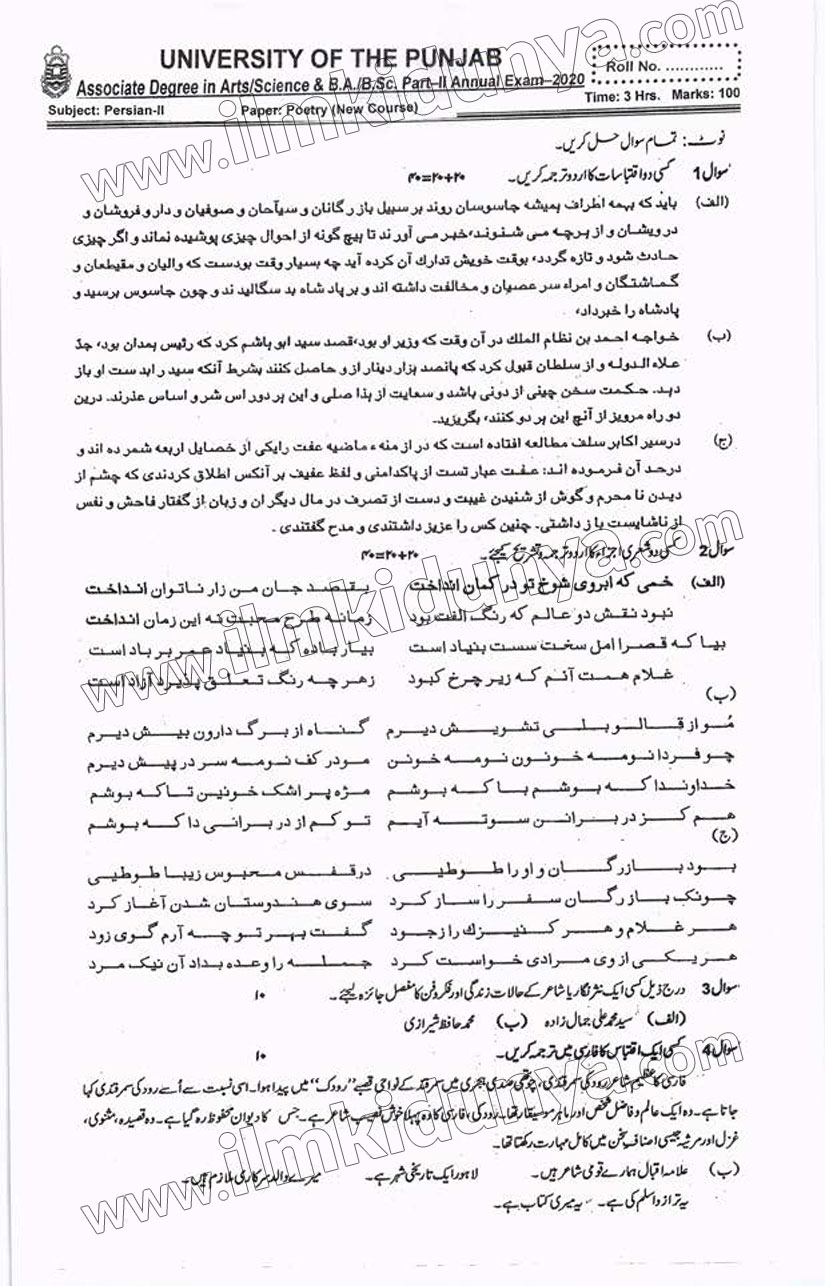 UNIVERSITY OF THE PUNJAB
Roll No. ............
Associate Degree in Arts/Science & B.A./B.Sc. Part-II Annual Exam-2020
Time: 3 Hrs. Marks: 100
Subject: Persian-II Paper: Poetry (New Course)
نوٹ: تمام سوال حل کریں۔
سوال 1 کسی دو اقتباسات کا اردو ترجمہ کریں۔ ۲۰+۲۰=۴۰
(الف) باید که بهمه اطراف ہمیشه جاسوسان روند بر سبیل بازرگانان و سیاحان و صوفیان و دارو فروشان و
درویشان و از ہرچه می شنوند، خبر می آورند تا ہیچ گونه از احوال چیزی پوشیده نماند و اگر چیزی
حادث شود و تازه گردد، بوقت خویش تدارك آن کرده آید چه بسیار وقت بودست که والیان و مقیطعان و
گماشتگان و امراء سر عصیان و مخالفت داشته اند و بر پاد شاه بد سگالیدند و چون جاسوس برسید و
پادشاه را خبرداد،
(ب) خواجه احمد بن نظام الملك در آن وقت که وزیر او بود، قصد سید ابو ہاشم کرد که رئیس ہمدان بود، جدّ
علاء الدوله و از سلطان قبول کرد که پانصد ہزار دینار ازو حاصل کنند بشرط آنکه سید را بدست او باز
دہد. حکمت سخن چینی از دونی باشد و سعایت از بذا صلی و این ہر دور اس شر و اساس عذرند. درین
دو راه مرویز از آنچ این ہر دو کنند، بگریزید.
(ج) درسیر اکابر سلف مطالعه افتاده است که در از منه ء ماضیه عفت رایکی از خصایل اربعه شمر ده اند و
درحد آن فرموده اند: عفت عبار تست از پاکدامنی و لفظ عفیف بر آنکس اطلاق کردندی که چشم از
دیدن نا محرم و گوش از شنیدن غیبت و دست از تصرف در مال دیگر ان و زبان از گفتار فاحش و نفس
از ناشایست باز داشتی. چنین کس را عزیز داشتندی و مدح گفتندی .
سوال 2 کسی دو شعری اجزاء کا اردو ترجمہ و تشریح کیجئے۔ ۲۰+۲۰=۴۰
(الف) خمی که ابروی شوخ تو در کمان انداخت بقصد جان من زار ناتوان انداخت
نبود نقش دو عالم که رنگ الفت بود زمانه طرح محبت نه این زمان انداخت
بیا که قصرا امل سخت سست بنیاد است بیار باده که بنیاد عمر بر باد است
غلام همت آنم که زیر چرخ کبود زهر چه رنگ تعلق پذیرد آزاد است
(ب)
مُو از قالو بلی تشویش دیرم گناه از برگ دارون بیش دیرم
چو فردا نومه خونون نومه خونن مودر کف نومه سر در پیش دیرم
خداوندا که بوشم با که بوشم مژه پر اشک خونین تاکه بوشم
هم کز در برانن سوته آیم تو کم از در برانی دا که بوشم
(ج)
بود بازرگان و او را طوطیی در قفس محبوس زیبا طوطیی
چونک بازرگان سفر را ساز کرد سوی هندوستان شدن آغاز کرد
هر غلام و هر کنیزك را زجود گفت بهر تو چه آرم گوی زود
هر یکی از وی مرادی خواست کرد جمله را وعده بداد آن نیک مرد
سوال 3 درج ذیل کسی ایک نثر نگار یا شاعر کے حالات زندگی اور فکر و فن کا مفصل جائزہ لیجئے۔ ۱۰
(الف) سید محمد علی جمال زادہ (ب) محمد حافظ شیرازی
سوال 4 کسی ایک اقتباس کا فارسی میں ترجمہ کریں۔ ۱۰
فارسی کا عظیم شاعر رودکی سمرقندی، چوتھی صدی ہجری میں سمرقند کے نواحی قصبے "رودک" میں پیدا ہوا۔ اسی نسبت سے اُسے رودکی سمرقندی کہا
جاتا ہے۔ وہ ایک عالم و فاضل شخص اور ماہر موسیقار تھا۔ رودکی، فارسی کا وہ پہلا خوش نصیب شاعر ہے۔ جس کا دیوان محفوظ رہ گیا ہے۔ وہ قصیدہ، مثنوی،
غزل اور مرثیہ جیسی اصناف سخن میں کامل مہارت رکھتا تھا۔
(ب) علامہ اقبال ہمارے قومی شاعر ہیں۔ لاہور ایک تاریخی شہر ہے۔ میرے والد سرکاری ملازم ہیں۔
یہ ترازو اسلم کی ہے۔ یہ میری کتاب ہے۔
www.ilmkidunya.com
www.ilmkidunya.com
www.ilmkidunya.com
www.ilmkidunya.com